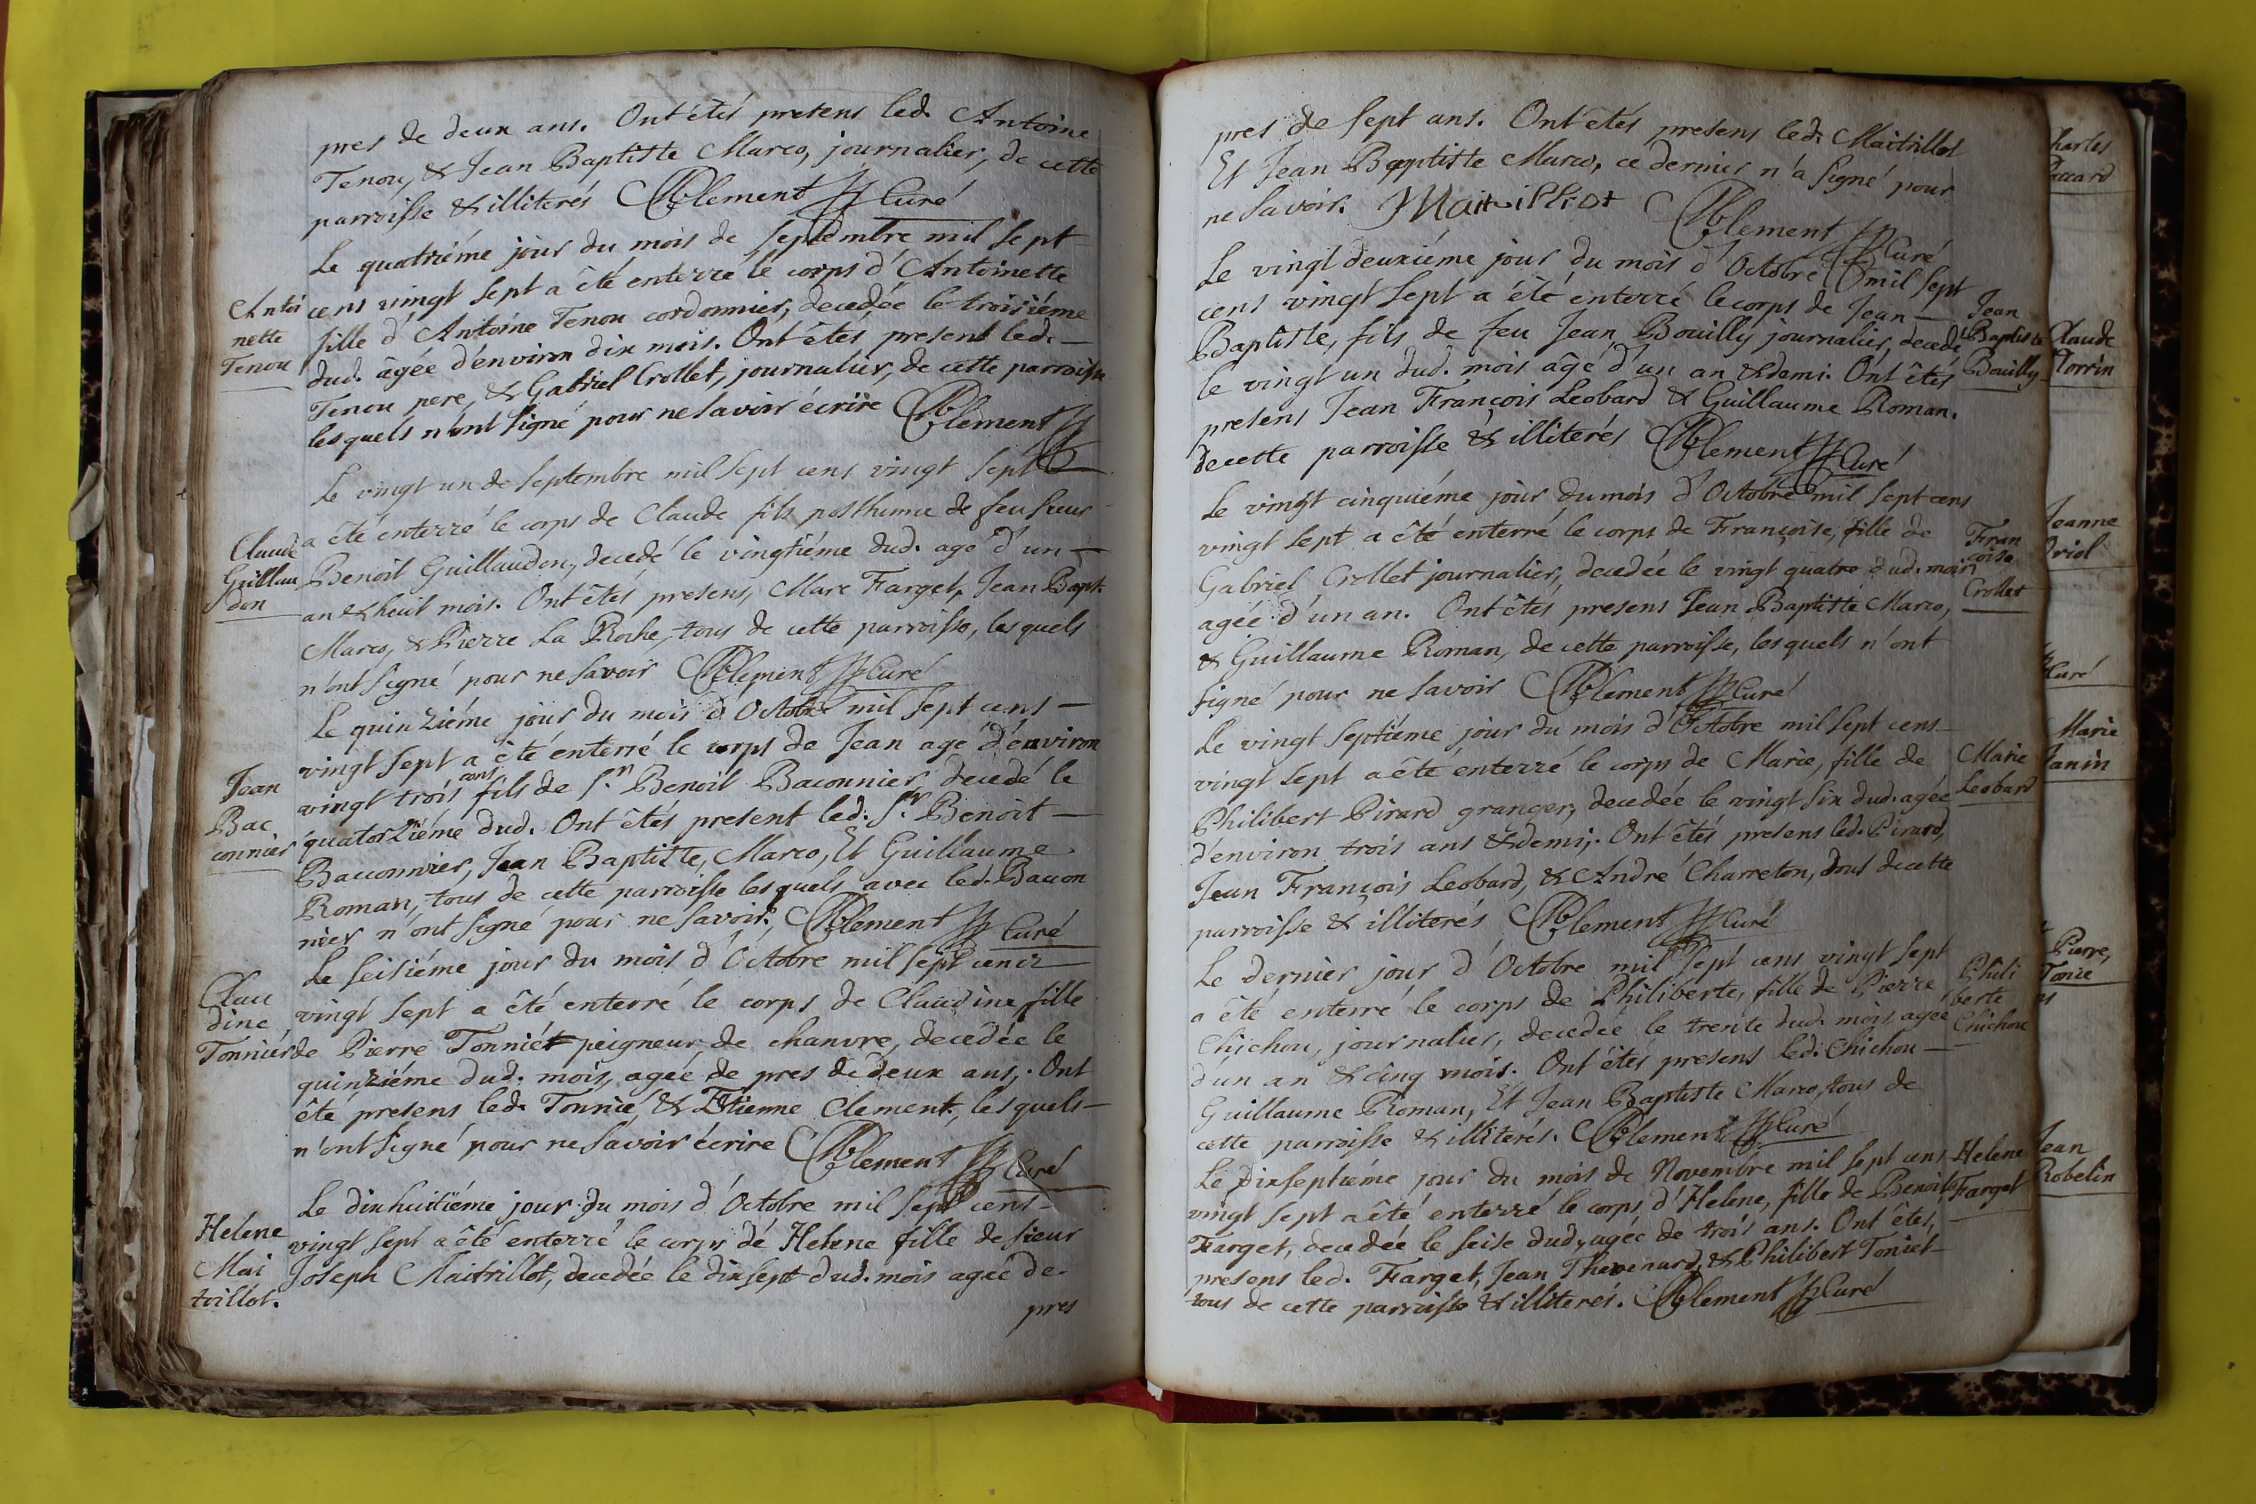 pres de deux ans. Ont étés presens led. Antoine
Tenou, & Jean Baptiste Marco, journalier, de cette
parroisse & illiterés Clement Curé
Le quatriéme jour du mois de septembre mil sept
cens vingt sept a êté enterré le corps d'Antoinette
fille d'Antoine Tenou cordonnier, decedée le troisiéme
dud. âgée d'environ dix mois. Ont êtés present led.
Tenou pere, & Gabriel Crollet, journalier, de cette parroisse
lesquels n'ont signé pour ne savoir écrire Clement
Antoi
nette
Tenou
Le vingt un de septembre mil sept cens vingt sept
a été enterré le corps de Claude fils posthume de feu sieur
Benoit Guillaudon, decedé le vingtiéme dud. agé d'un
an & huit mois. Ont êtés presens, Marc Farget, Jean Bapt.
Marco, & Pierre La Roche, tous de cette parroisse, lesquels
n'ont signé pour ne savoir Clement Curé
Claude
Guillau
don
Le quinziéme jour du mois d'Octobre mil sept cens
vingt sept a êté enterré le corps de Jean agé d'environ
vingt trois ans fils de Sr. Benoit Baconnier, decedé le
quatorziéme dud. Ont êtés present led. Sr. Benoit
Bacconnier, Jean Baptiste, Marco, Et Guillaume
Roman, tous de cette parroisse lesquels avec led. Bacon
nier n'ont signé pour ne savoir, Clement Curé
Jean
Bac
connier
Le seisiéme jour du mois d'Octobre mil sept cens
vingt sept a êté enterré le corps de Claudine fille
de Pierre Tonniér peigneur de chanvre, decedée le
quinziéme dud. mois, agée de pres de deux ans,. Ont
êté presens led. Tonnié, & Etienne Clement, lesquels
n'ont signé pour ne savoir écrire Clement Curé
Clau
dine
Tonniér
Le dix huitiéme jour du mois d'Octobre mil sept cens
vingt sept a êté enterré le corps de Helene fille de sieur
Joseph Maitrillot, decedée le dix sept dud. mois agée de
pres
Helene
Mai
trillot.
pres de sept ans. Ont étés presens led. Maitrillot
Et Jean Baptiste Marco, ce dernier n'a signé pour
ne savoir. Maitrilliot Clement Curé
Le vingt deuxiéme jour du mois d'Octobre mil sept
cens vingt sept a êté enterré le corps de Jean
Baptiste, fils de feu Jean Bouilly journalier, decedé
le vingt un dud. mois âgé d'un an & demi. Ont êtés
presens Jean François Leobard & Guillaume Roman.
de cette parroisse & illiterés Clement Curé
Jean
Baptiste
Bouilly
Le vingt cinquiéme jour du mois d'Octobre mil sept cens
vingt sept a êté enterré le corps de Françoise, fille de
Gabriel Crollet journalier, decedée le vingt quatre dud. mois
agée d'un an. Ont êtés presens Jean Baptiste Marco,
& Guillaume Roman, de cette parroisse, lesquels n'ont
signé pour ne savoir Clement Curé
Fran
çoise
Crollet
Le vingt septiéme jour du mois d'Octobre mil sept cens
vingt sept a êté enterré le corps de Marie, fille de
Philibert Pirard granger, decedée le vingt six dud. agée
d'environ trois ans & demi,. Ont êtés presens led. Pirard,
Jean François Leobard, & André Charreton, tous de cette
parroisse & illiterés Clement Curé
Marie
Leobard
Le dernier jour d'Octobre mil sept cens vingt sept
a êté enterré le corps de Philiberte, fille de Pierre
Chichou, journalier, decedée le trente dud. mois, agée
d'un an & cinq mois. Ont êtés presens led. Chichou
Guillaume Roman, Et Jean Baptiste Marco, tous de
cette parroisse & illiterés. Clement Curé
Phili
berte
Chichou
Le dix septiéme jour du mois de Novembre mil sept cens
vingt sept a êté enterré le corps d'Helene, fille de Benoit
Farget, decedée le seise dud, agée de trois ans. Ont êtés,
presens led. Farget, Jean Thevenard, & Philibert Toniet
tous de cette parroisse & illiterés. Clement Curé
Helene
Farget
Charles
Claude
Jeanne
Curé
Marie
Janin
Pierre,
Tonie
Jean
Robelin